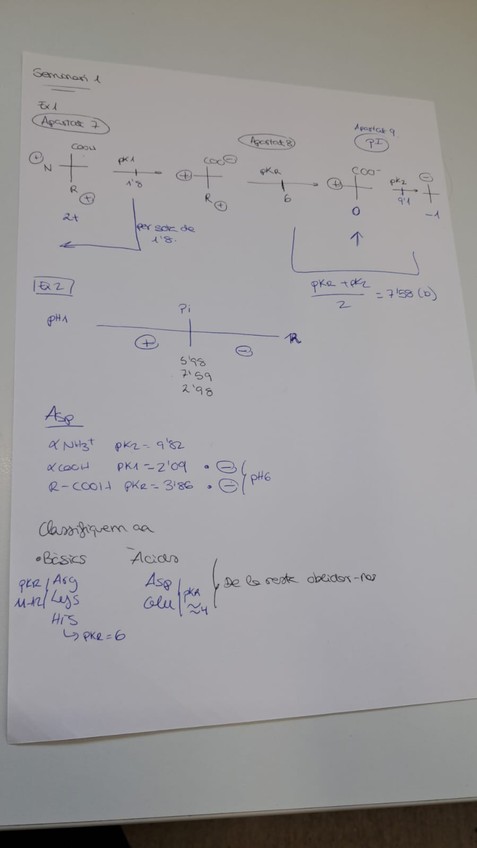 Seminari 1
Ex1
Apartat 7
Apartat 8
Apartat 9
PI
COOH
pK1
COO⊖
pKR
COO⁻
pK2
⊖
⊕ N
1'8
⊕
6
⊕
9'1
R
⊕
R
⊕
0
-1
2+
per sota de
1'8.
↑
pKR + pK2
2
= 7'58 (b)
Ex 2
pH1
Pi
⊕
⊖
5'98
7'59
2'98
Asp
αNH3⁺ pK2 = 9'82
αCOOH pK1 = 2'09 • ⊖
R-COOH pKR = 3'86 • ⊖
pH6
Classifiquem aa
• Bàsics
Àcids
pKR
Arg
Asp
De la resta oblidar-nos
Lys
Glu
pKR
≈4
His
↳ pKR = 6